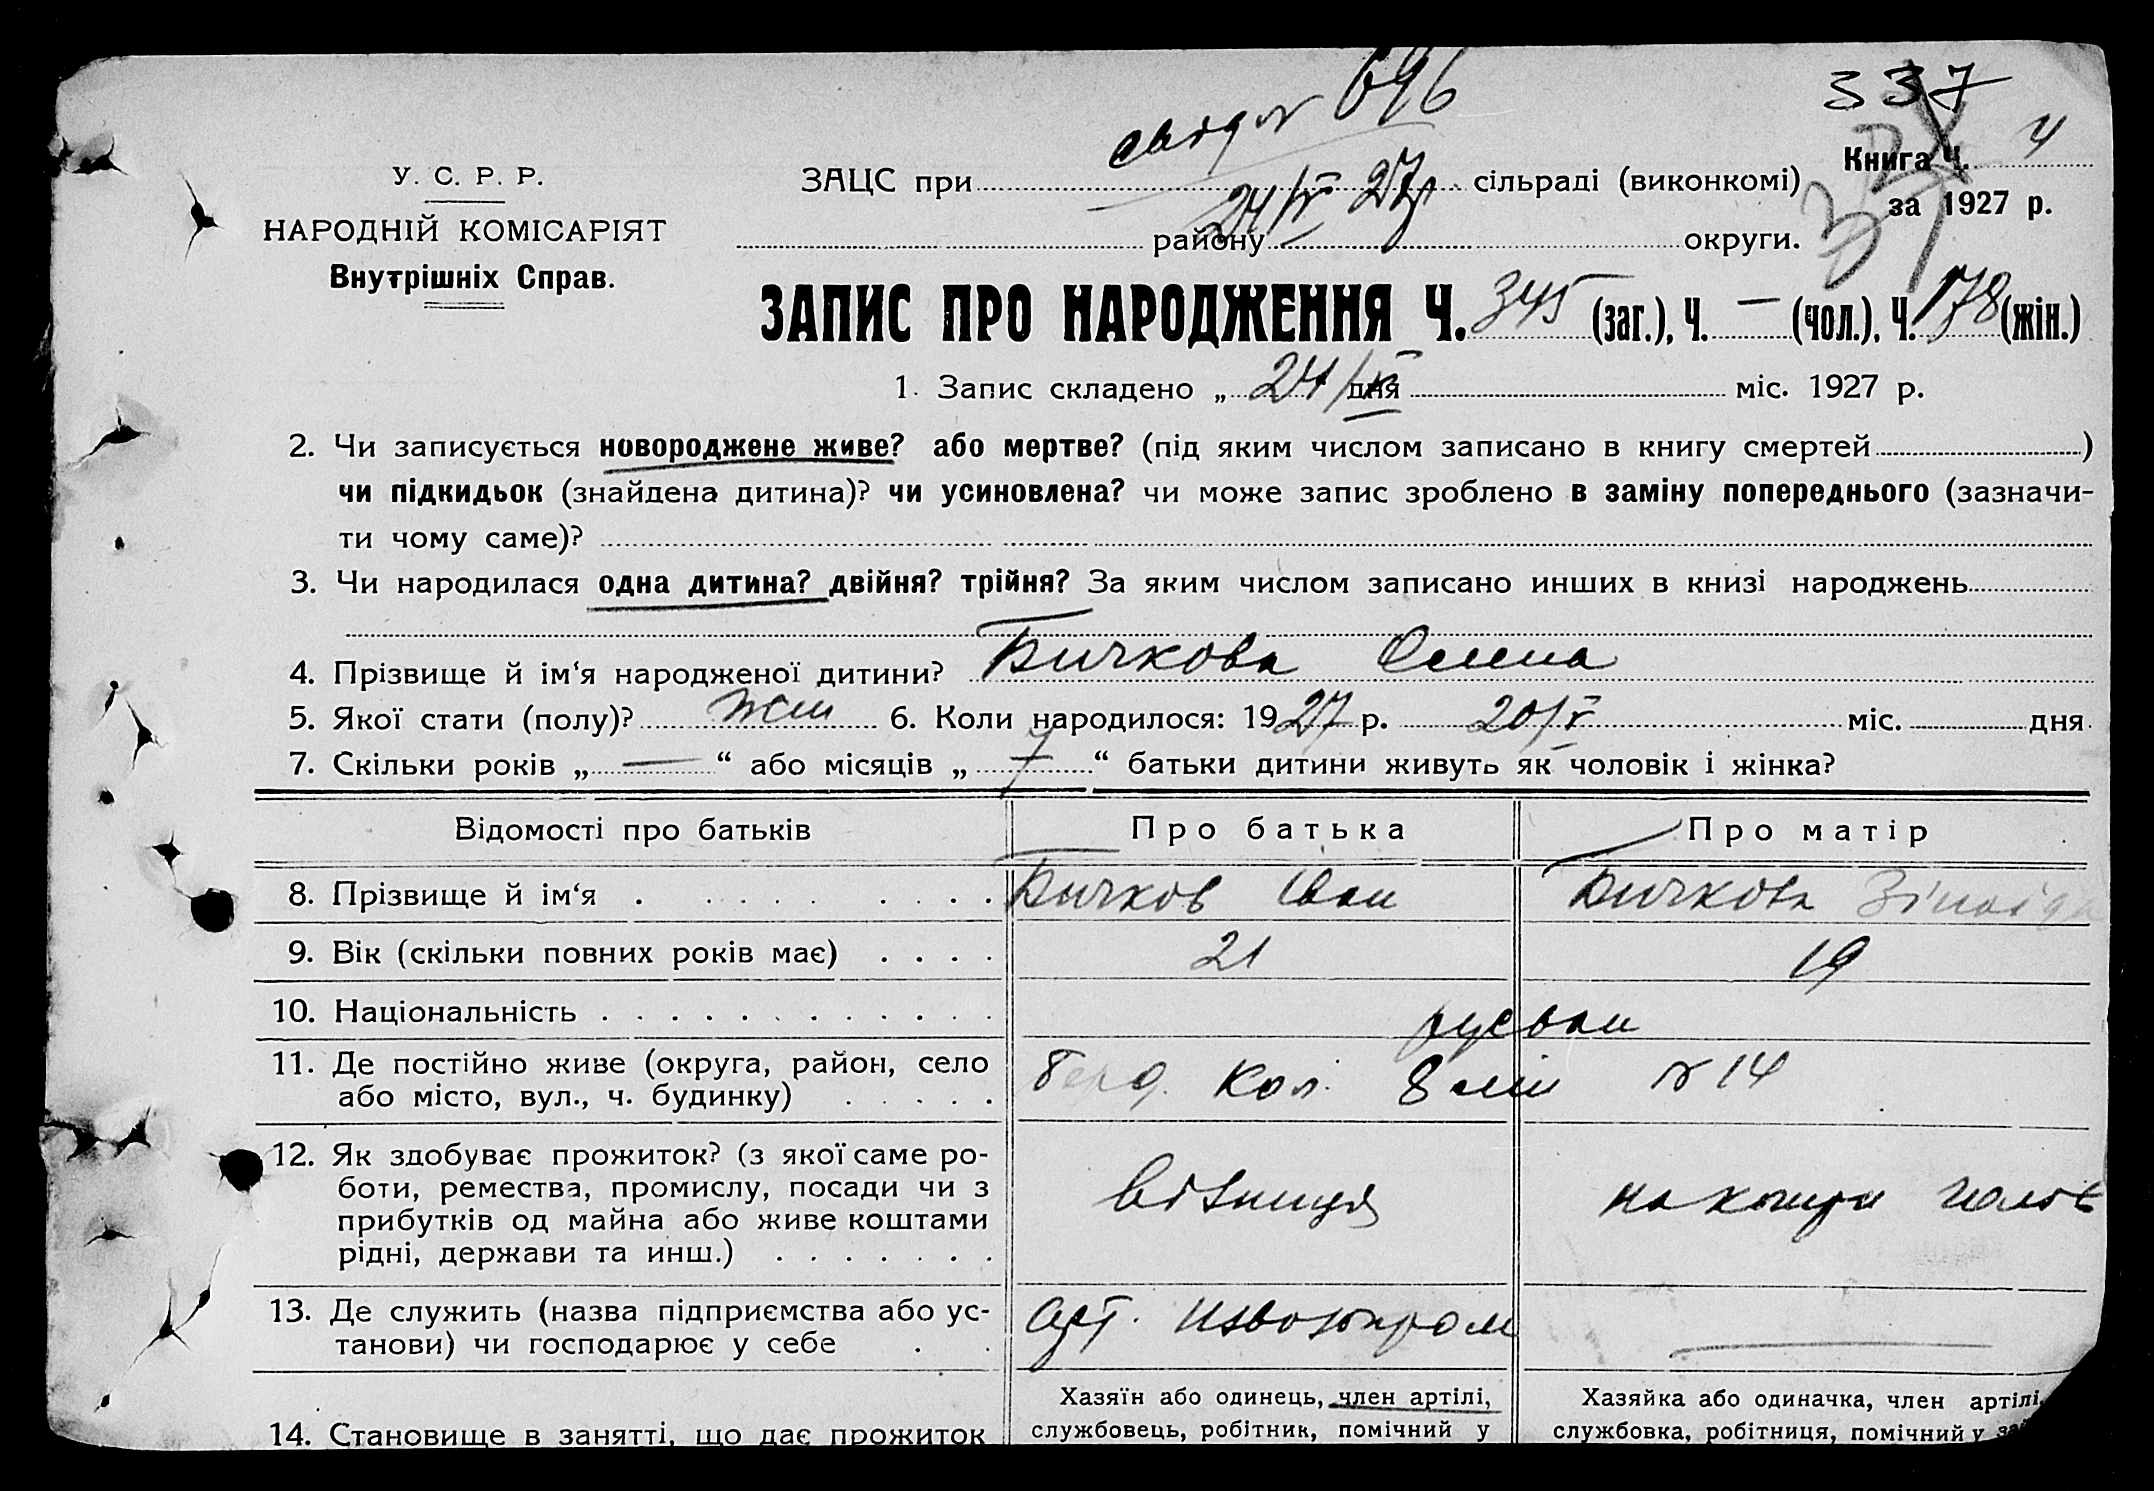 337
свід № 696
Книга Ч. 4
У. С. Р. Р.
ЗАЦС при сільраді (виконкомі)
за 1927 р.
24/V 27р
НАРОДНІЙ КОМІСАРІЯТ
району округи.
Внутрішніх Справ.
ЗАПИС ПРО НАРОДЖЕННЯ Ч. 345 (заг.), Ч. — (чол.), Ч. 178 (жін.)
1. Запис складено „ 24/V дня міс. 1927 р.
2. Чи записується новороджене живе? або мертве? (під яким числом записано в книгу смертей )
чи підкидьок (знайдена дитина)? чи усиновлена? чи може запис зроблено в заміну попереднього (зазначи-
ти чому саме)?
3. Чи народилася одна дитина? двійня? трійня? За яким числом записано инших в книзі народжень
4. Прізвище й ім‘я народженої дитини? Бичкова
5. Якої стати (полу)? жін 6. Коли народилося: 1927 р. 20/V міс. дня
7. Скільки років „ — “ або місяців „ 7 “ батьки дитини живуть як чоловік і жінка?
Відомості про батьків Про батька Про матір
8. Прізвище й ім‘я Бичков Іван Бичкова Зінаіда
9. Вік (скільки повних років має) 21 19
10. Національність
11. Де постійно живе (округа, район, село
або місто, вул., ч. будинку)
Кол. 8 лін № 14
12. Як здобуває прожиток? (з якої саме ро-
боти, ремества, промислу, посади чи з
прибутків од майна або живе коштами
рідні, держави та инш.)
візниця на кошти чолов
13. Де служить (назва підприємства або ус-
танови) чи господарює у себе
арт. Извозпром
Хазяїн або одинець, член артілі,
службовець, робітник, помічний у
Хазяйка або одиначка, член артілі,
службовка, робітниця, помічний у
14. Становище в занятті, що дає прожиток